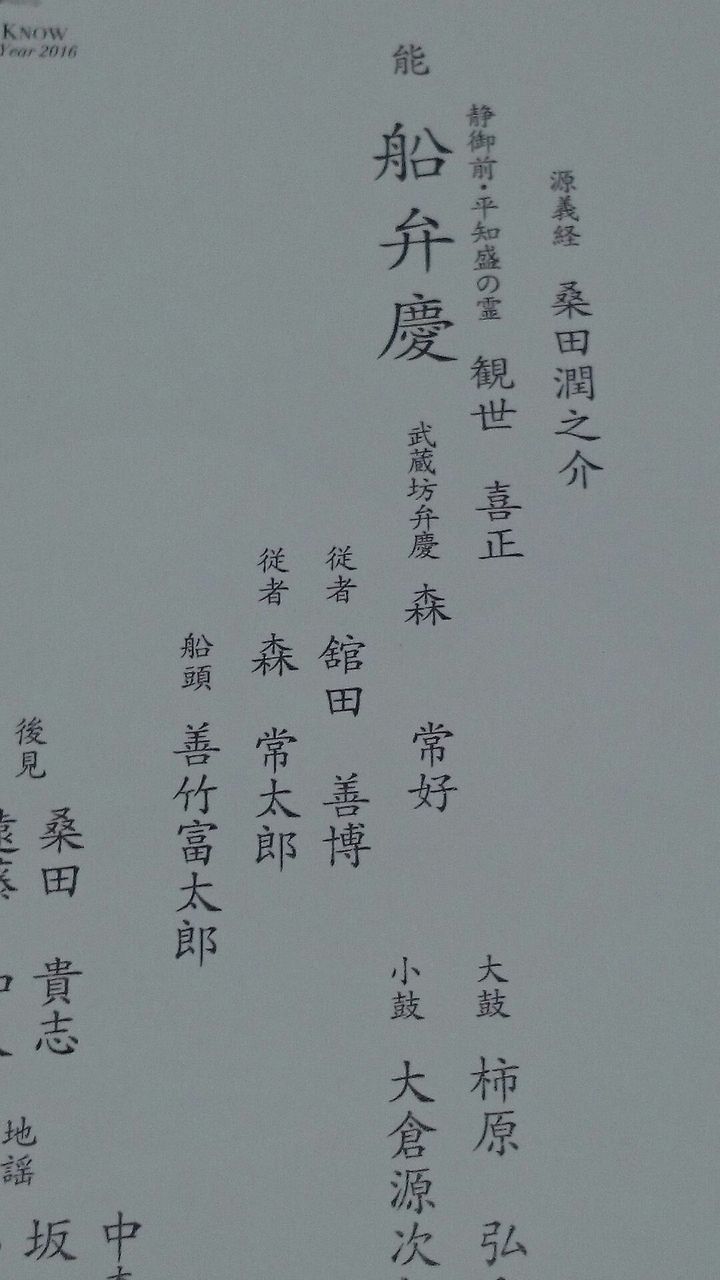 KNOW
Year 2016
源義経 桑田潤之介
静御前・平知盛の霊 観世 喜正
能 船弁慶
武蔵坊弁慶 森 常好
従者 舘田 善博
従者 森 常太郎
船頭 善竹富太郎
大鼓 柿原 弘
小鼓 大倉源次
後見 桑田 貴志
地謡
中
坂